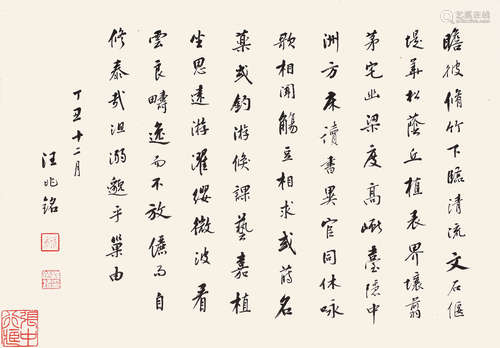 瞻彼脩竹下臨清流文石偃
堤華松蔭丘植表界壤剪
茅宅幽梁度高𡾋臺隱中
洲方床讀書異官同休詠
歌相聞觴豆相求或蒔名
藥或釣游倏課藝嘉植
坐思遠游濯纓微波看
雲良疇逸而不放儷而自
修泰哉沮溺邈乎巢由
丁丑十二月
汪兆銘
張中